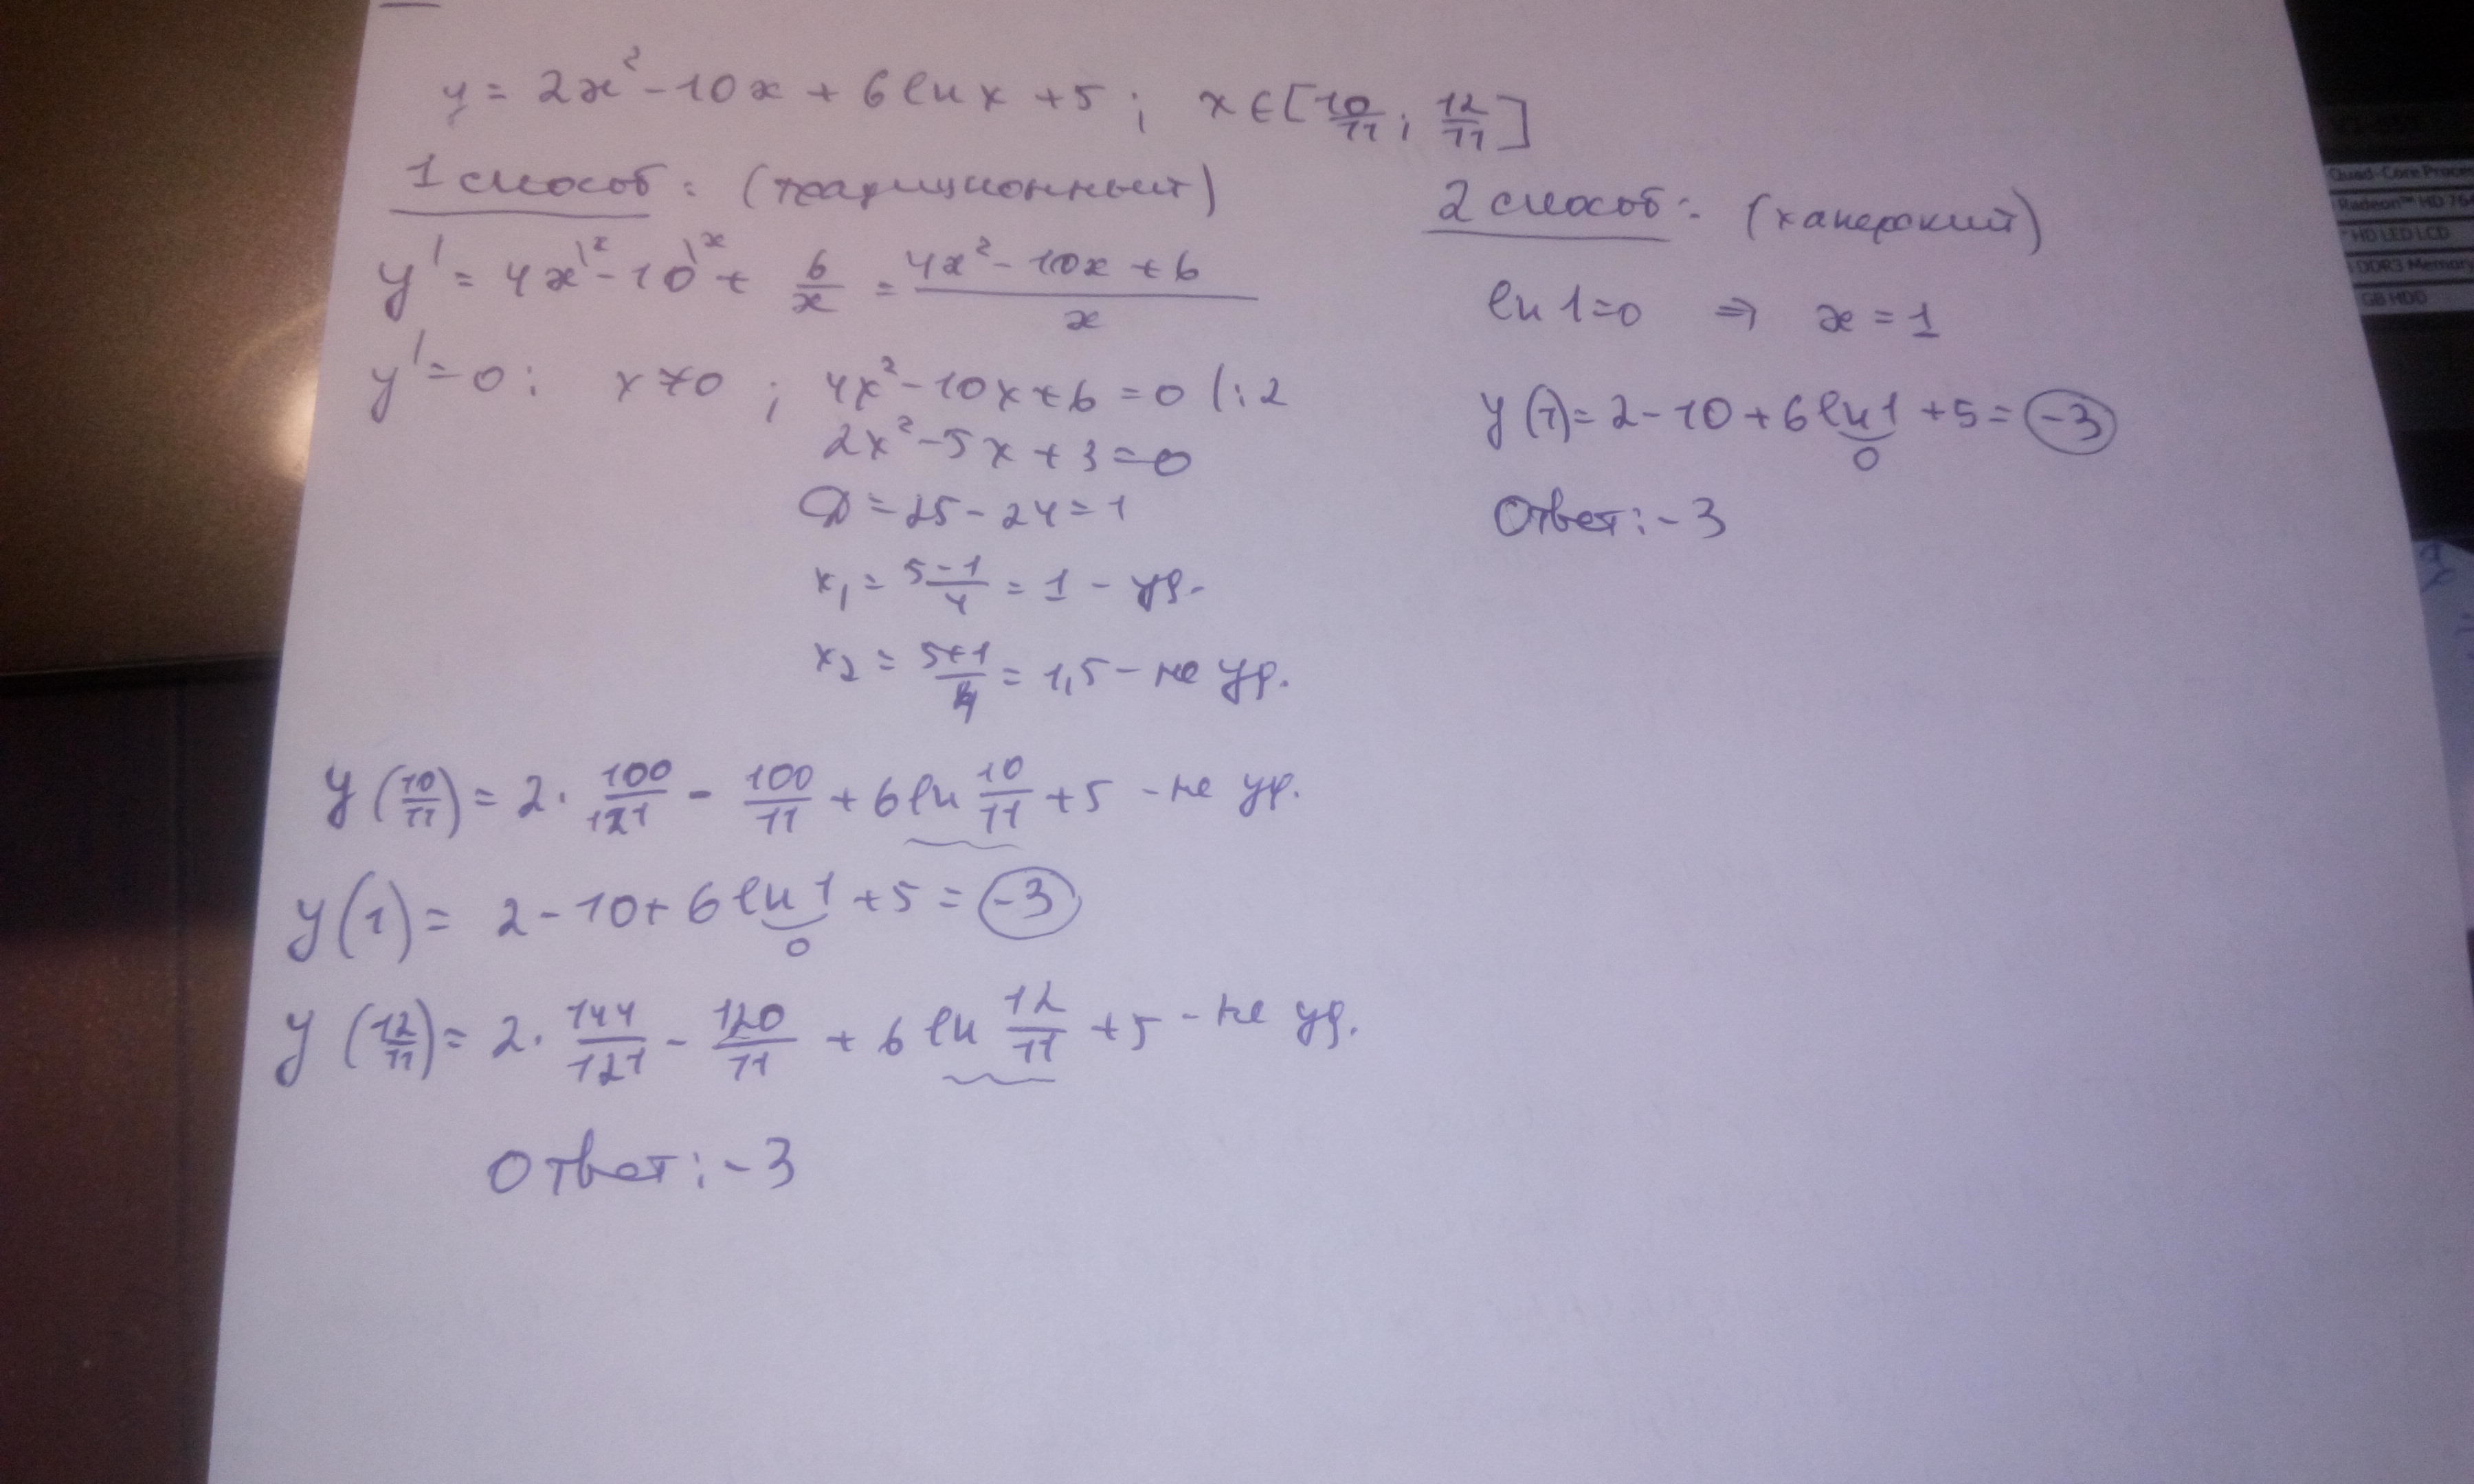 y = 2x² - 10x + 6 ln x + 5 ; x ∈ [10/11 ; 12/11]
1 способ : (традиционный)
y' = 4x\ˣ - 10\ˣ + 6/x = (4x² - 10x + 6)/x
y' = 0 : x ≠ 0 ; 4x² - 10x + 6 = 0 |:2
2x² - 5x + 3 = 0
D = 25 - 24 = 1
x₁ = (5-1)/4 = 1 - уд.
x₂ = (5+1)/4 = 1,5 - не уд.
y(10/11) = 2 · 100/121 - 100/11 + 6 ln 10/11 + 5 - не уд.
y(1) = 2 - 10 + 6 ln 1 + 5 = -3
0
y(12/11) = 2 · 144/121 - 120/11 + 6 ln 12/11 + 5 - не уд.
Ответ : -3
2 способ : (хакерский)
ln 1 = 0 ⇒ x = 1
y(1) = 2 - 10 + 6 ln 1 + 5 = -3
0
Ответ : -3
Quad-Core Proces
Radeon™ HD 76
HD LED LCD
DDR3 Memory
GB HDD